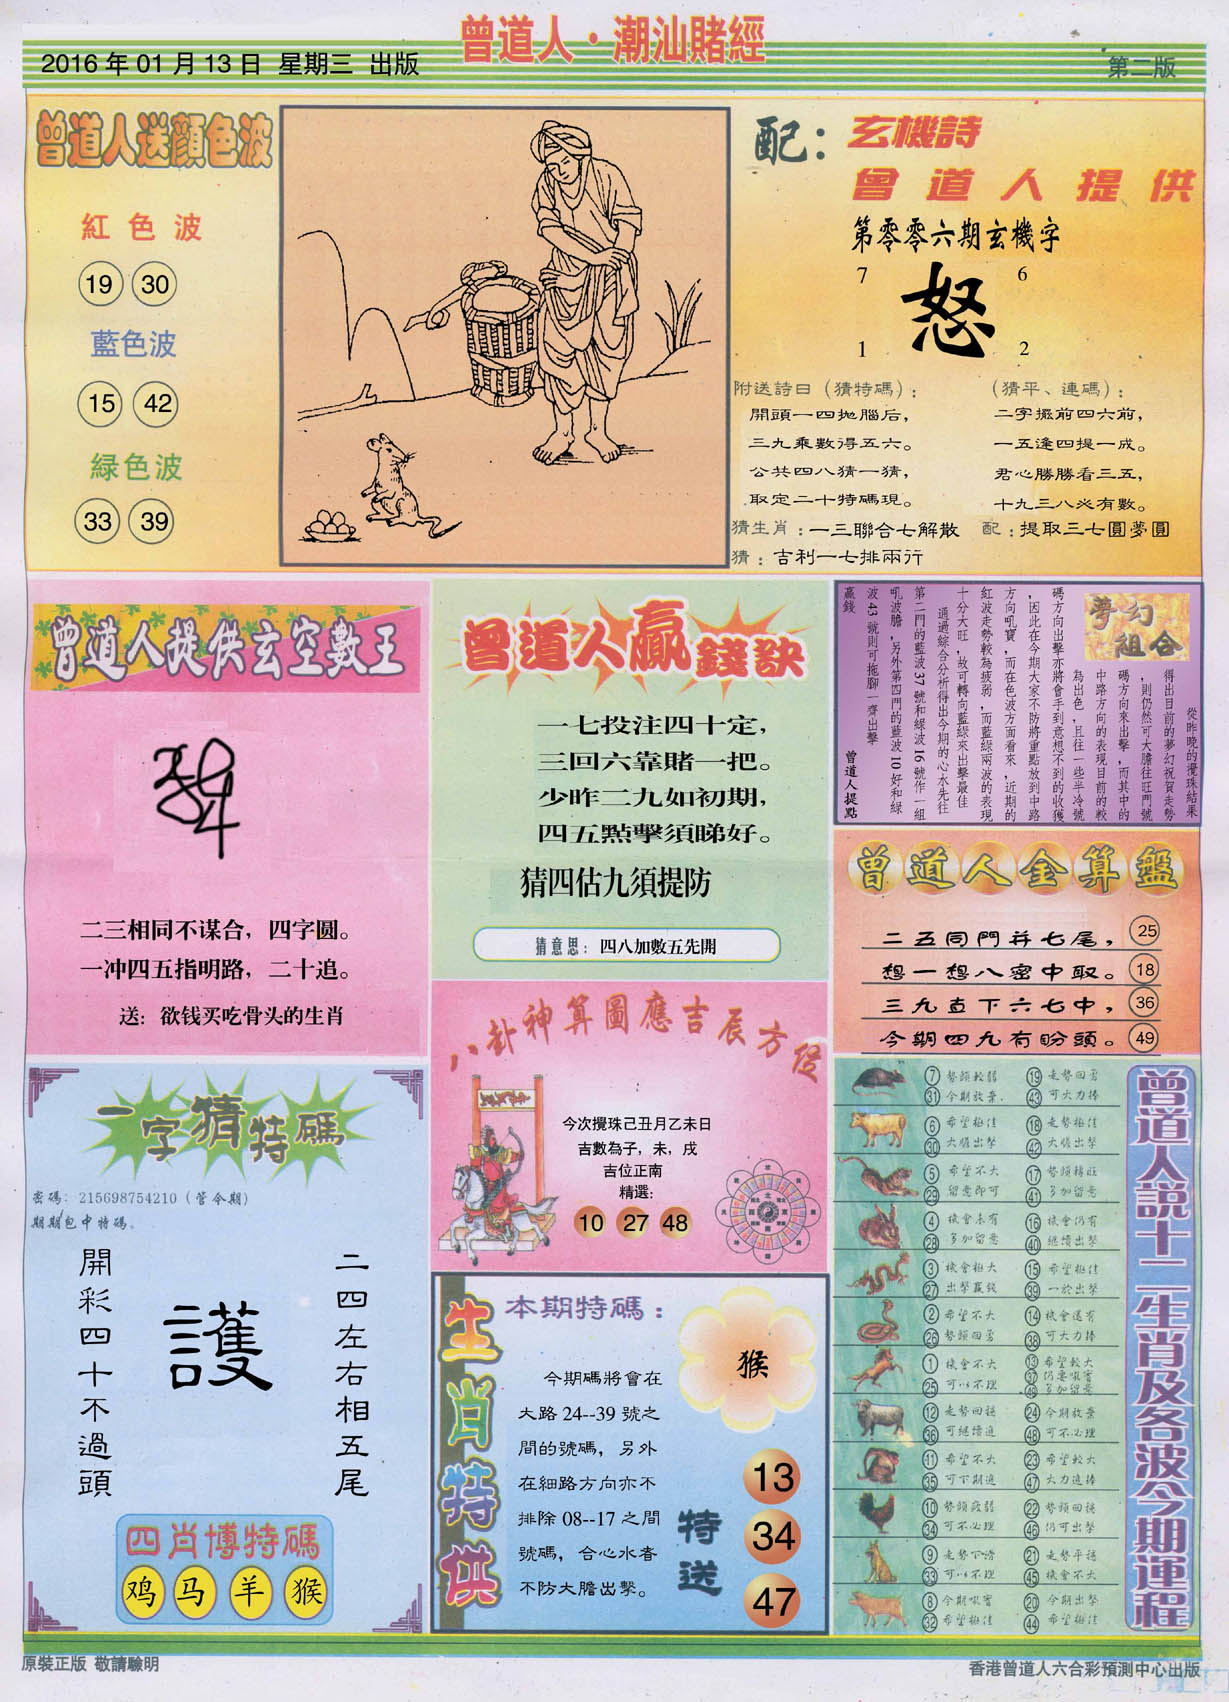 曾道人·潮汕賭經
2016年01月13日 星期三 出版
第二版
曾道人送顏色波
紅色波
19 30
藍色波
15 42
緑色波
33 39
配：玄機詩
曾道人提供
第零零六期玄機字
7 6
怒
1 2
附送詩曰（猜特碼）：
開頭一四拋腦后，
三九乘數得五六。
公共四八猜一猜，
取定二十特碼現。
（猜平、連碼）：
二字擺前四六前，
一五逢四提一成。
君心勝勝看三五，
十九三八必有數。
猜生肖：一三聯合七解散 配：提取三七圓夢圓
猜：吉利一七排兩行
曾道人提供玄空數王
二三相同不谋合，四字圆。
一冲四五指明路，二十追。
送：欲钱买吃骨头的生肖
曾道人贏錢訣
一七投注四十定，
三回六靠賭一把。
少昨二九如初期，
四五點擊須睇好。
猜四估九須提防
猜意思：四八加數五先開
夢幻組合
從昨晚的攪珠結果
得出目前的夢幻祝賀走勢
，則仍然可大膽往旺門號
碼方向來出擊，而其中的
中路方向的表現目前的較
為出色，且往一些半冷號
碼方向出擊亦將會手到意想不到的收獲
，因此在今期大家不防將重點放到中路
方向吼寶，而在色波方面看來，近期的
紅波走勢較為疲弱，而藍綠兩波的表現
十分大旺，故可轉向藍綠來出擊最佳
通過綜合分析得出今期的心水先往
第二門的藍波37號和緑波16號作一組
吼波膽，另外第四門的藍波10好和綠
波43號則可拖腳一齊出擊
贏錢
曾道人提點
曾道人金算盤
二五同門并七尾， 25
想一想八密中取。 18
三九直下六七中， 36
今期四九有盼頭。 49
八卦神算圖應吉辰方位
今次攪珠己丑月乙未日
吉數為子，未，戌
吉位正南
精選：
10 27 48
一字猜特碼
密碼：215698754210（管令期）
期期包中特碼。
二四左右相五尾
護
開彩四十不過頭
四肖博特碼
鸡 马 羊 猴
生肖特供
本期特碼：
猴
今期碼將會在
大路24--39號之
間的號碼，另外
在細路方向亦不
排除08--17之間
號碼，合心水者
不防大膽出擊。
特送
13
34
47
曾道人説十二生肖及各波今期運程
7 勢頭較弱 19 走勢回勇
31 今期放棄 43 可大力捧
6 希望極佳 18 走勢極佳
30 大膽出擊 42 大膽出擊
5 希望不大 17 勢頭轉旺
29 留意即可 41 多加留意
4 機會未有 16 機會仍有
28 多加留意 40 繼續出擊
3 機會極大 15 希望極佳
27 出擊贏錢 39 一於出擊
2 希望不大 14 機會還有
26 勢頭回勇 38 可大力捧
1 機會不大 13 希望較大
25 可以不理 37 仍要吼實
49 多加留意
12 走勢回穩 24 今期放棄
36 可繼續追 48 可不必理
11 希望不大 23 希望較大
35 可下期追 47 大力追捧
10 勢頭疲弱 22 勢頭回穩
34 可不必理 46 仍可出擊
9 走勢下滑 21 走勢平穩
33 可以不理 45 機會不大
8 今期吼實 20 今期出擊
32 希望極佳 44 希望極佳
原裝正版 敬請驗明
香港曾道人六合彩預測中心出版